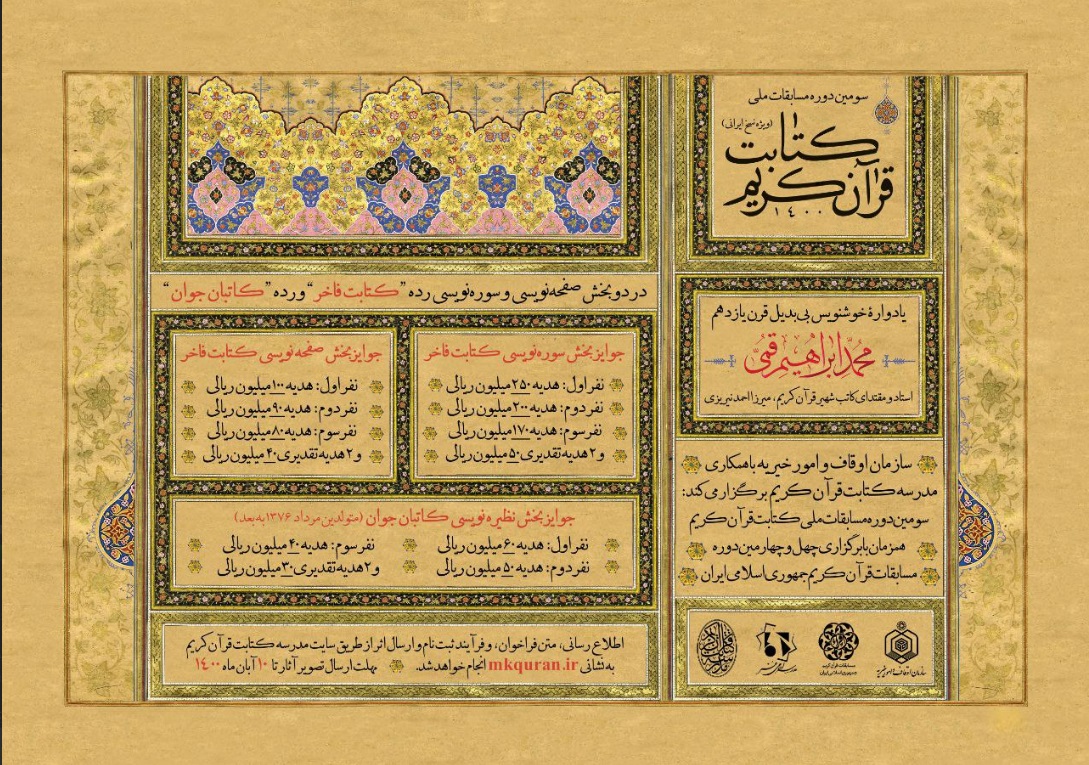 سومین دوره مسابقات ملی
(ویژه نسخ ایرانی)
کتابت
قرآن کریم
۱۴۰۰
یادوارهٔ خوشنویس بی‌بدیل قرن یازدهم
محمدابراهیم قمی
استاد و مقتدای کاتب شهیر قرآن کریم، میرزا احمد نیریزی
سازمان اوقاف و امور خیریه باهمکاری
مدرسه کتابت قرآن کریم برگزار می‌کند:
سومین دوره مسابقات ملی کتابت قرآن کریم
همزمان با برگزاری چهل و چهارمین دوره
مسابقات قرآن کریم جمهوری اسلامی ایران
سازمان اوقاف و امور خیریه
مسابقات قرآن کریم
جمهوری اسلامی ایران
در دو بخش صفحه‌نویسی و سوره‌نویسی رده "کتابت فاخر" و رده "کاتبان جوان"
جوایز بخش سوره‌نویسی کتابت فاخر
نفر اول: هدیه ۲۵۰ میلیون ریالی
نفر دوم: هدیه ۲۰۰ میلیون ریالی
نفر سوم: هدیه ۱۷۰ میلیون ریالی
و ۲ هدیه تقدیری ۵۰ میلیون ریالی
جوایز بخش صفحه‌نویسی کتابت فاخر
نفر اول: هدیه ۱۰۰ میلیون ریالی
نفر دوم: هدیه ۹۰ میلیون ریالی
نفر سوم: هدیه ۸۰ میلیون ریالی
و ۲ هدیه تقدیری ۴۰ میلیون ریالی
جوایز بخش نظیره‌نویسی کاتبان جوان (متولدین مرداد ۱۳۷۶ به بعد)
نفر اول: هدیه ۶۰ میلیون ریالی
نفر دوم: هدیه ۵۰ میلیون ریالی
نفر سوم: هدیه ۴۰ میلیون ریالی
و ۲ هدیه تقدیری ۳۰ میلیون ریالی
اطلاع رسانی، متن فراخوان، و فرآیند ثبت نام و ارسال اثر از طریق سایت مدرسه کتابت قرآن کریم
به نشانی mkquran.ir انجام خواهد شد. مهلت ارسال تصویر آثار تا ۱۰ آبان ماه ۱۴۰۰